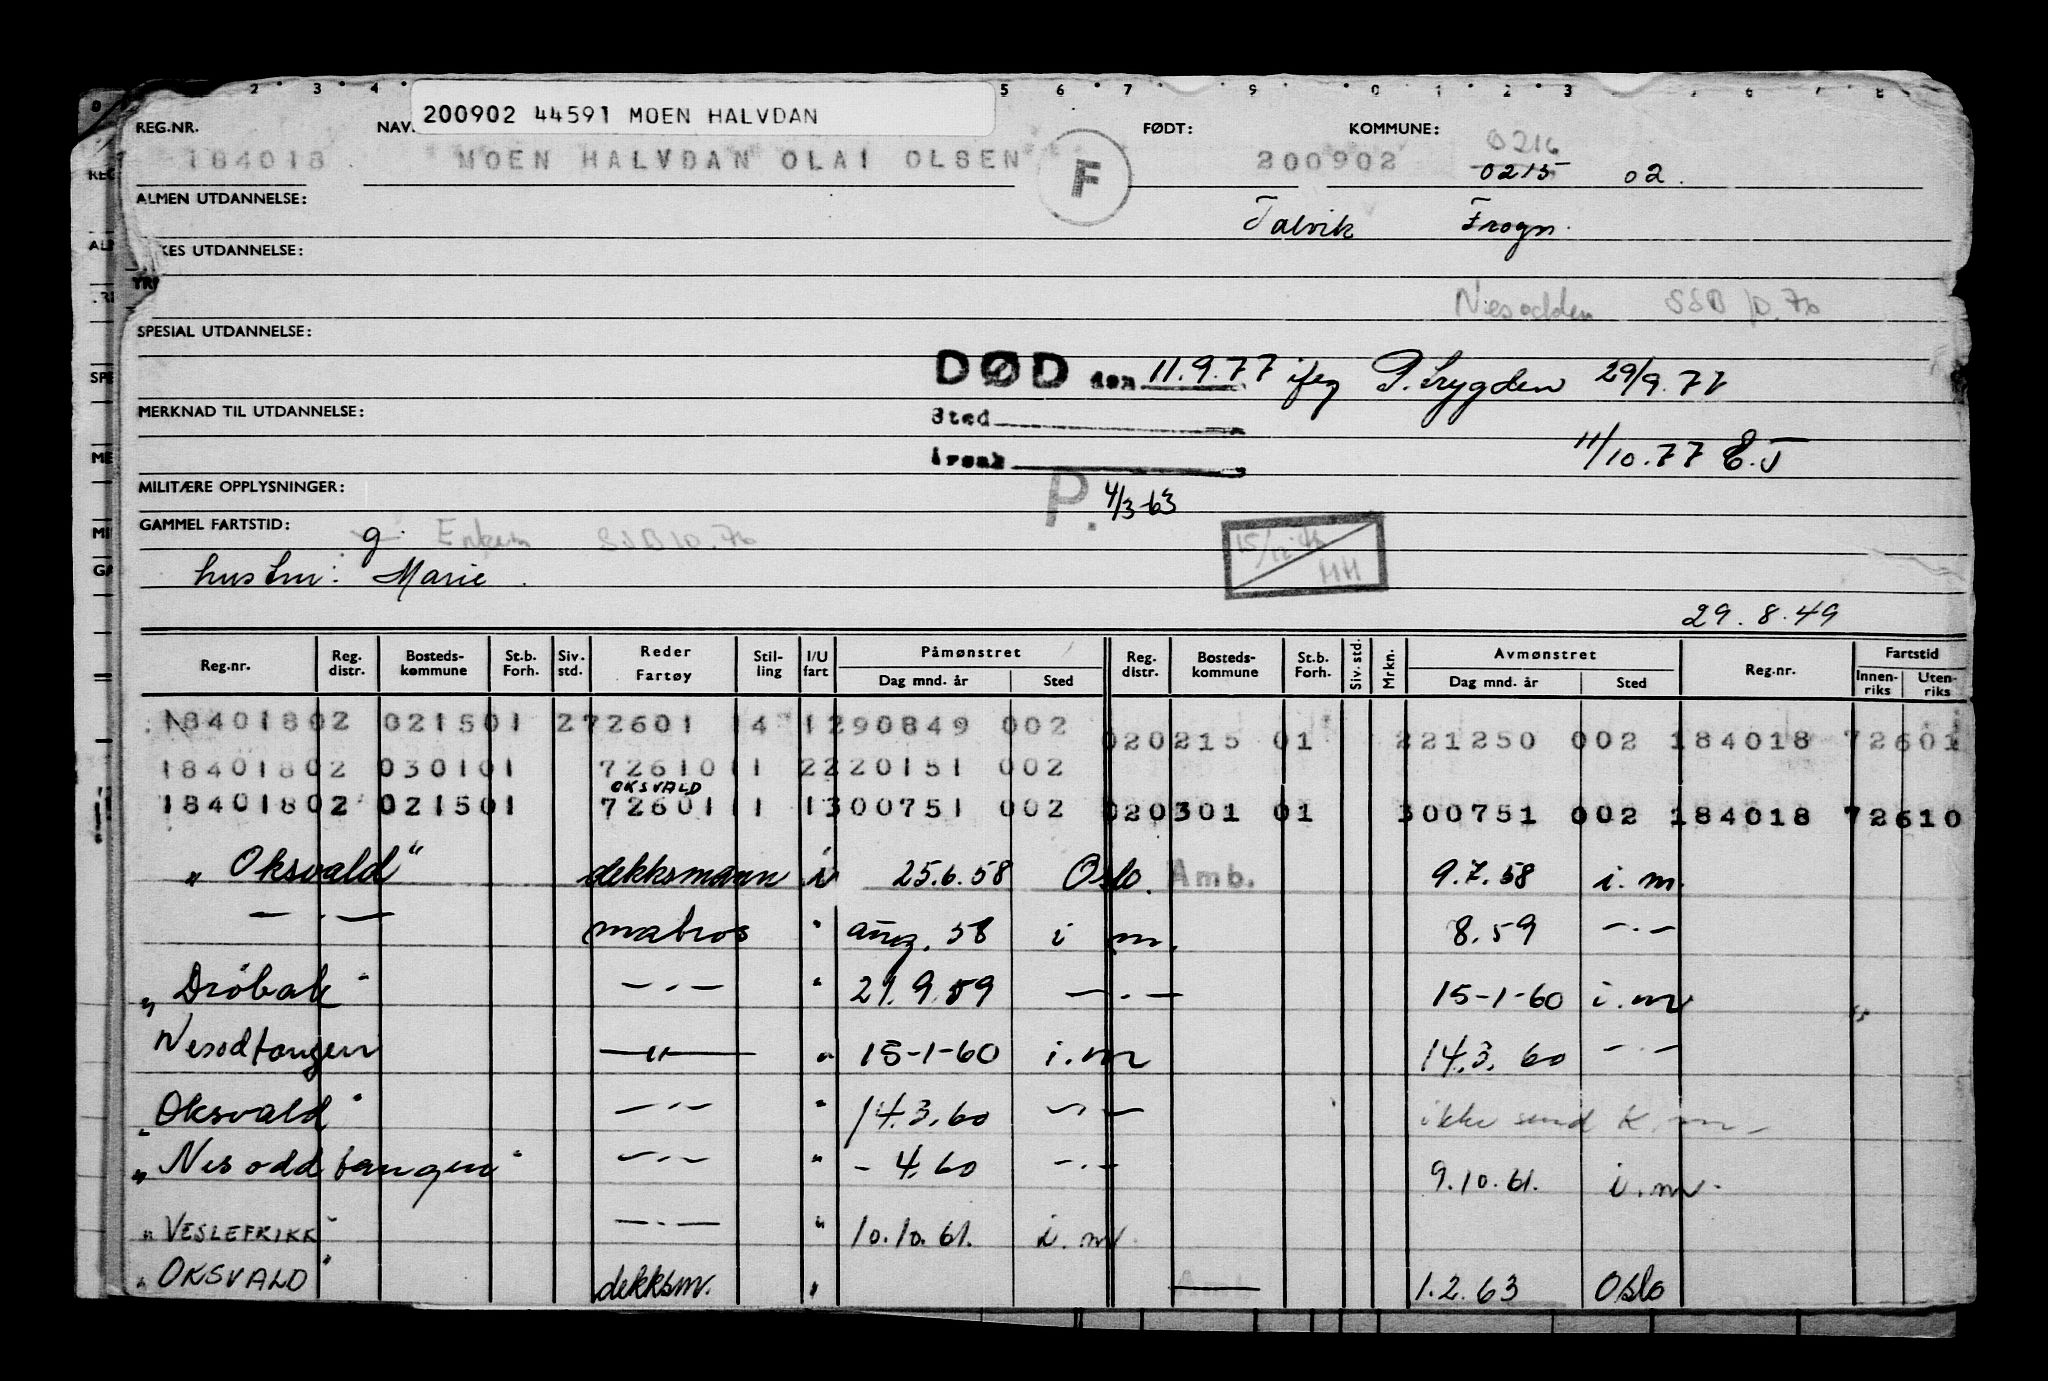 200902 44591 MOEN HALVDAN
REG.NR. NAV. FØDT: KOMMUNE: 0216
184018 MOEN HALVDAN OLAI OLSEN F 200902 0215 02.
ALMEN UTDANNELSE: Talvik Frogn.
KES UTDANNELSE:
Nesodden SSB 10.76
SPESIAL UTDANNELSE:
DØD den 11.9.77 iføg P. trygden 29/9.77
MERKNAD TIL UTDANNELSE: Sted
Årsak 11/10.77 E.T
MILITÆRE OPPLYSNINGER: P. 4/3-63
GAMMEL FARTSTID: g. SSB 10.76
hustru: Marie. HH
29.8.49
Reg.nr. Reg. distr. Bosteds-kommune St.b. Forh. Siv. std. Reder Fartøy Stil-ling I/U fart Påmønstret Dag mnd. år Sted Reg. distr. Bosteds-kommune St.b. Forh. Siv. std. Mrkn. Avmønstret Dag mnd. år Sted Reg.nr. Fartstid Innen-riks Uten-riks
18401802 021501 272601 14 1290849 002 020215 01 221250 002 184018 72601
18401802 030101 7261011 2220151 002
OKSVALD
18401802 021501 7260111 1300751 002 020301 01 300751 002 184018 72610
„Oksvald" dekksmann i 25.6.58 Oslo. Amb. 9.7.58 i.m.
— . — matros " aug. 58 i m. 8.59 — . —
„Drøbak" — . — " 21.9.59 — . — 15-1-60 i.m
Nesodtangen — " — " 15-1-60 i.m 14.3.60 — . —
„Oksvald" — . — " 14.3.60 — . — ikke send K.m.
„Nesoddtangen" — . — " - 4.60 — . — 9.10.61. i.m.
„VESLEFRIKK" — . — " 10.10.61. i.m.
„OKSVALD" dekksm. " — 1.2.63 Oslo